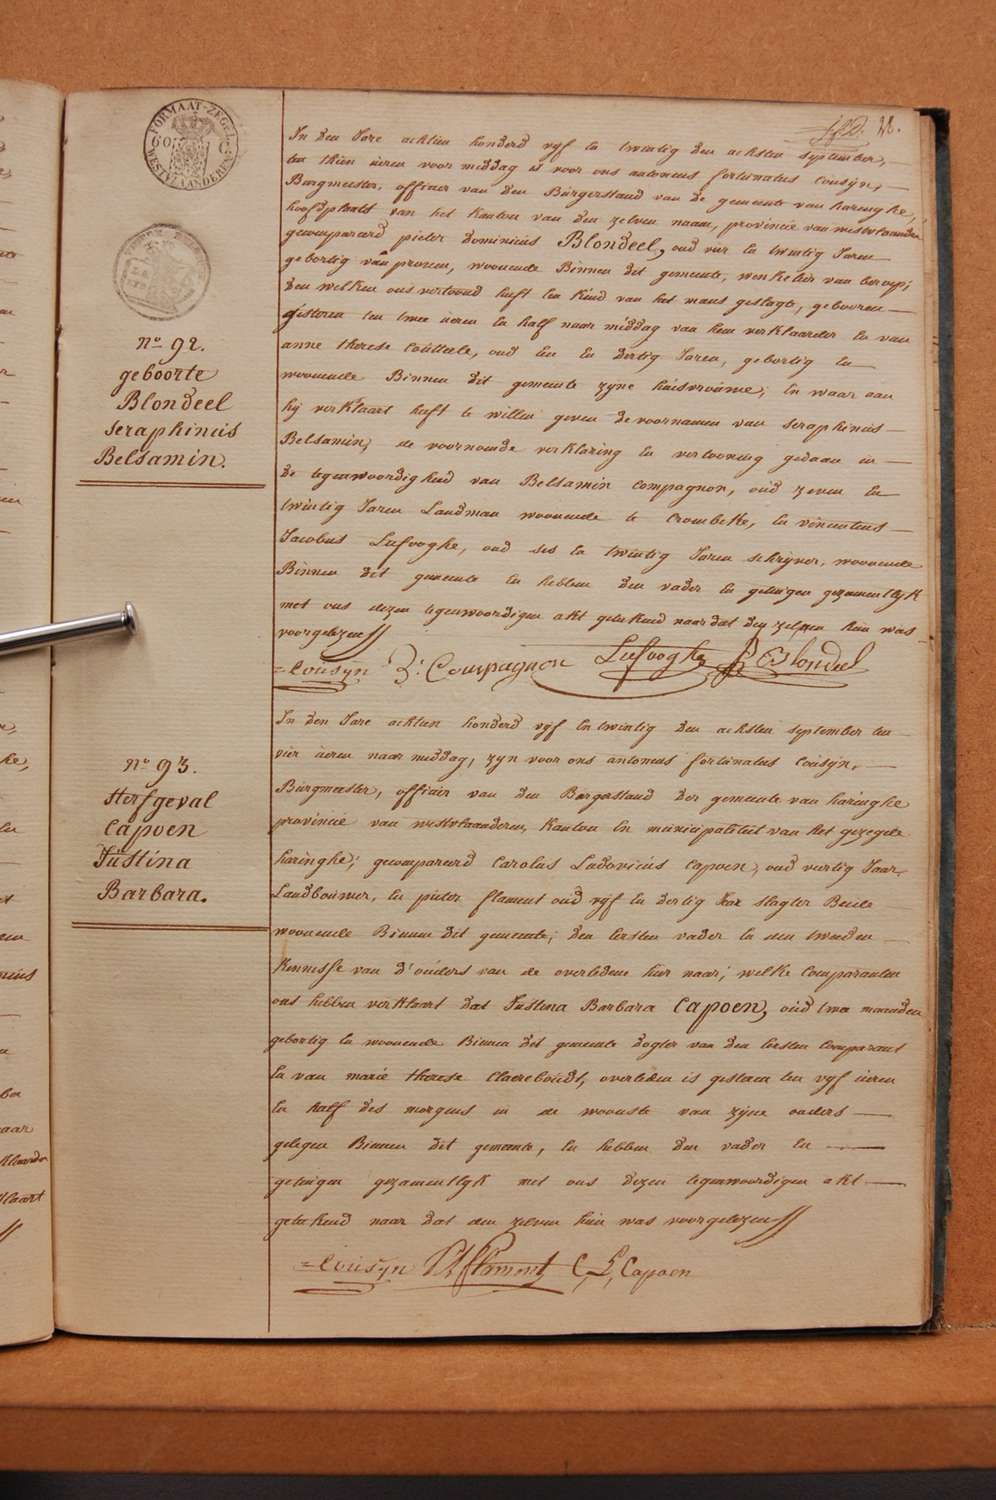 FORMAAT-ZEGEL
60 C
WESTVLAANDEREN
fol. 22.
N.o 92.
geboorte
Blondeel
Seraphinus
Belsamin.
In den Jare achtien honderd vyf en twintig den achsten september,
ten thien ueren voor middag is voor ons antonius fortunatus Cousÿn,
Burgmeester, officier van den Burgerstand van de gemeente van haringhe,
hoofdplaats van het Kanton van den zelven naam, provincie van westvlaanderen
gecompareerd pieter dominicus Blondeel, oud vier en twintig Jaren
gebortig van proven, woonende Binnen dit gemeente, wenkelier van beroep;
den welken ons vertoond heeft een kind van het mans geslagte, gebooren
gisteren ten twee ueren en half naar middag van hem verklaarder en van
anne therese Coutteele, oud een en dertig Jaren, gebortig en
woonende Binnen dit gemeente zyne huisvrouwe; en waar aan
hij verklaart heeft te willen geven de voornamen van seraphinus
Belsamin; de voornoemde verklaring en vertooning gedaan in
de tegenwoordigheid van Belsamin Compagnon, oud zeven en
twintig Jaren Landman woonende te Crombeke, en vincentius
Jacobus Lefooghe, oud ses en twintig Jaren schrijver, woonende
Binnen dit gemeente en hebben den vader en getuigen gezamentlyk
met ons dezen tegenwoordigen akt getekend naar dat den zelven hun was
voorgelezen
Cousÿn B. Compagnon Lefooghe P D Blondeel
N.o 93.
Sterfgeval
Capoen
Justina
Barbara.
In den Jare achtien honderd vyf en twintig den achsten september ten
vier ueren naar middag, zyn voor ons antonius fortunatus Cousÿn,
Burgmeester, officier van den Borgerstand der gemeente van haringhe
provincie van westvlaanderen, Kanton en municipaliteit van het gezegde
haringhe; gecompareerd Carolus Ludovicus Capoen, oud veertig Jaar,
Landbouwer, en pieter flament oud vyf en dertig Jaar slagter Beide
woonende Binnen dit gemeente; den eersten vader en den tweeden
Kennisse van d'ouders van de overledene hier naar; welke Comparanten
ons hebben verklaart dat Justina Barbara Capoen, oud twee maenden
gebortig en woonende Binnen dit gemeente dogter van den eersten Comparant
en van marie therese Claereboudt, overleden is gisteren ten vyf ueren
en half des morgens in de woonste van zyne ouders
gelegen Binnen dit gemeente, en hebben den vader en
getuigen gezamentlyk met ons dezen tegenwoordigen akt
getekend naar dat den zelven hun was voorgelezen
Cousÿn P. Flament C, L, Capoen